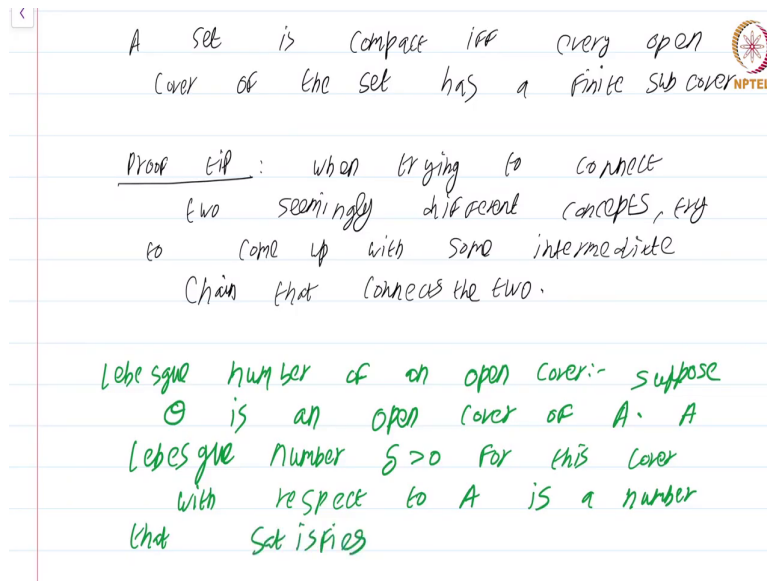 A set is compact iff every open
cover of the set has a finite sub cover
NPTEL
Proof tip : when trying to connect
two seemingly different concepts, try
to come up with some intermediate
chain that connects the two.
Lebesgue number of an open cover:- suppose
Θ is an open cover of A. A
Lebesgue number δ>0 for this cover
with respect to A is a number
that satisfies